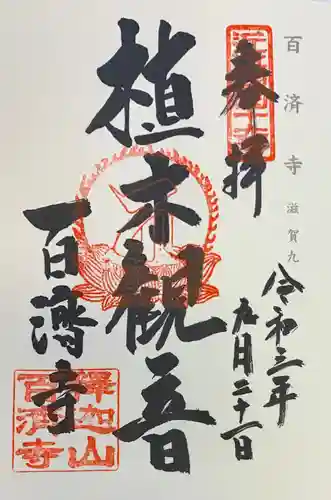 百済寺 滋賀九
奉拝
令和三年
五月二十一日
植木観音
百濟寺
釋迦山
百濟寺